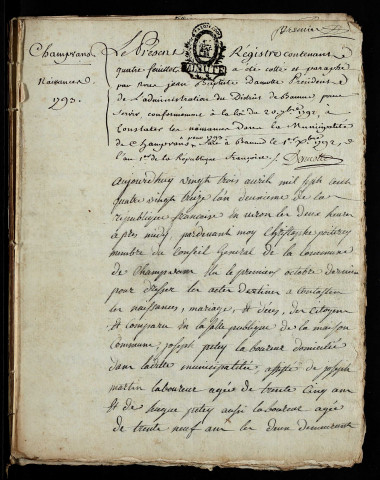 premier
Champvans
Naissances
1793.
Le Présent Régistre contenant
quatre feuillets a été cotté et paraphé
par nous jean Baptiste Damotte Président
de l'administration du District de Baume, pour
Servir, conformement à la loi du 20 7bre 1792, à
Constater les naissances dans la Municipalité
de Champvans, pour 1793. Fait à Baume le 1er Xbre 1792,
l'an 1er de la République françoise. Damotte
aujourdhuy vingt trois avril mil sept cent
quatre vingt treize l'an deuxieme de la
republique francaise environ les deux heures
après midy pardevant moy Christophe poitrey
membre du Conseil General de la commune
de Champvans élu le premier octobre dernier
pour dresser les actes destinés a constater
les naissances, mariage, et décés, des citoyens
et comparu en la salle publique de la maison
commune, joseph petey laboureur domicilié
dans ladite municipalité, assisté de joseph
martin laboureur agée de trente cinq ans
et de hugue petey aussi laboureur agée
de trente neuf ans les deux demeurant